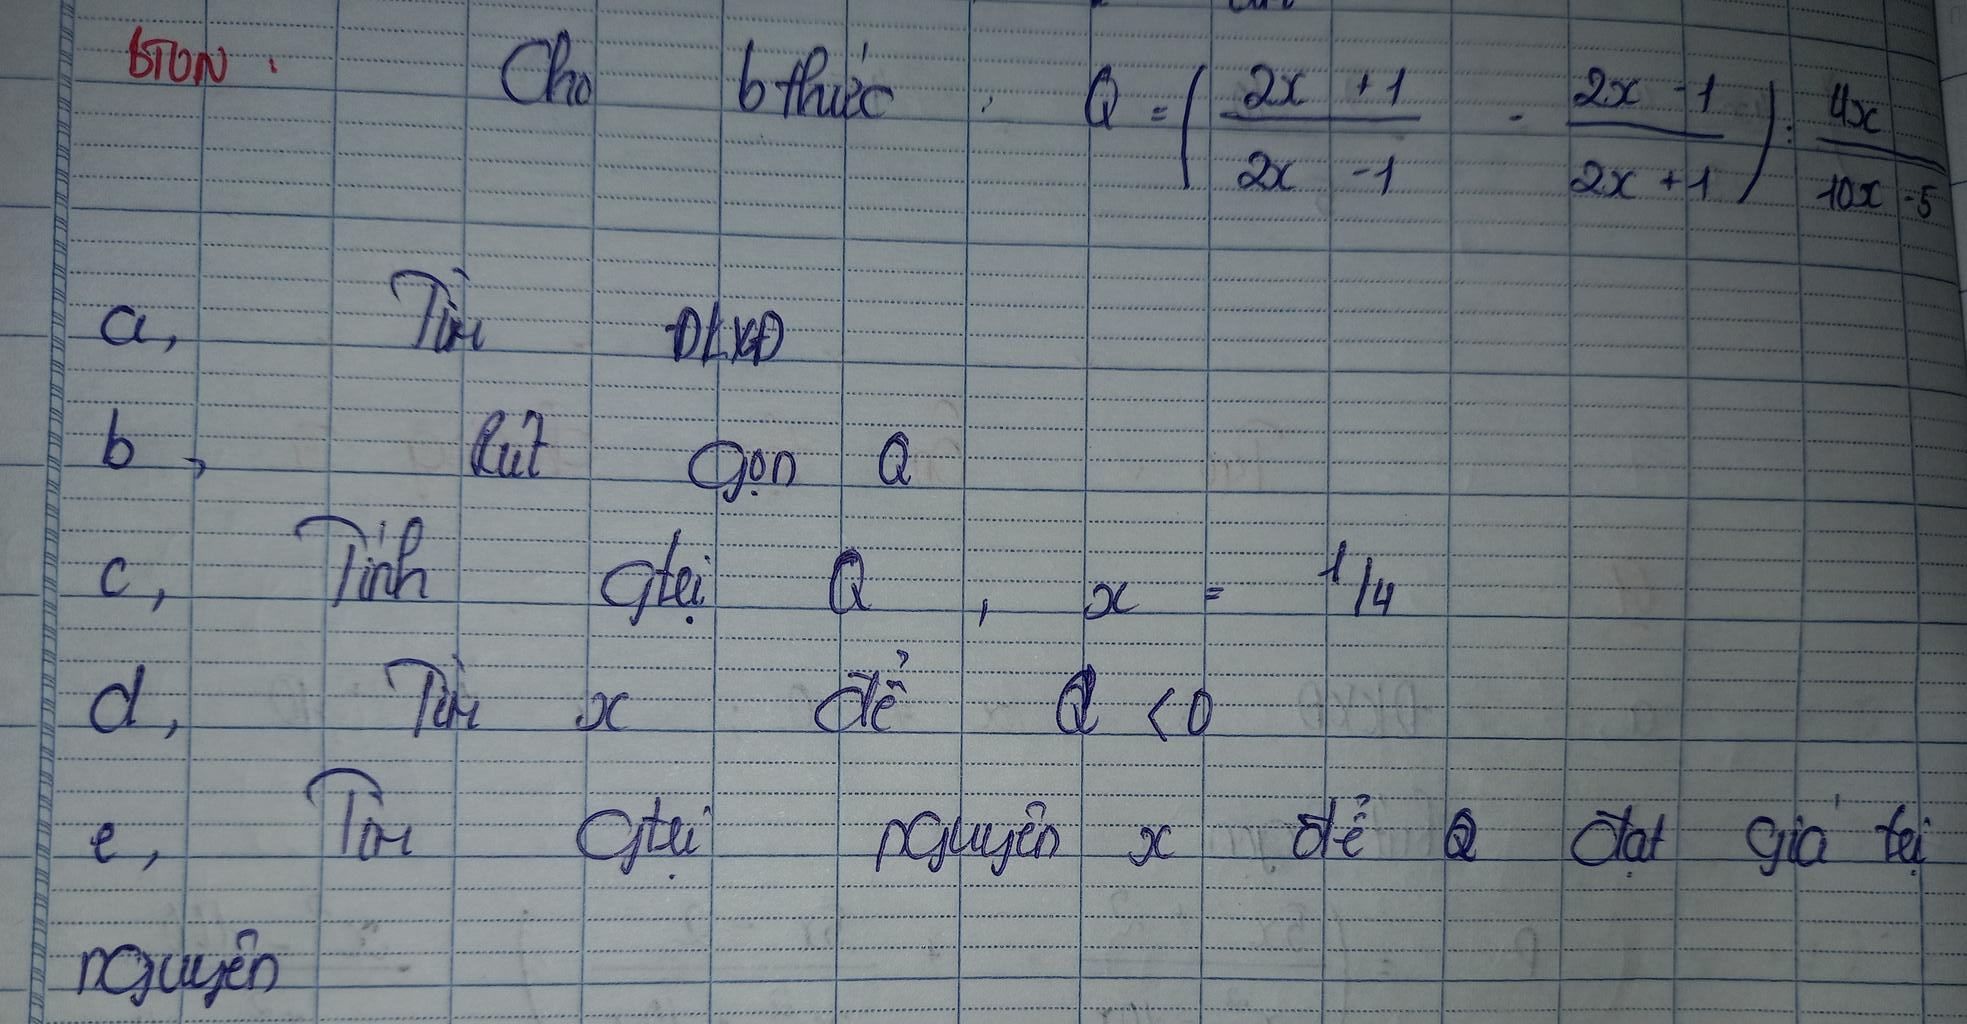 BTON : Cho bthức : Q = ( 2x + 1 / 2x - 1 - 2x - 1 / 2x + 1 ) : 4x / 10x - 5
a, Tìm ĐKXĐ
b, Rút gọn Q
c, Tính gtrị Q , x = 1/4
d, Tìm x để Q < 0
e, Tìm gtrị nguyên x để Q đạt giá trị
nguyên